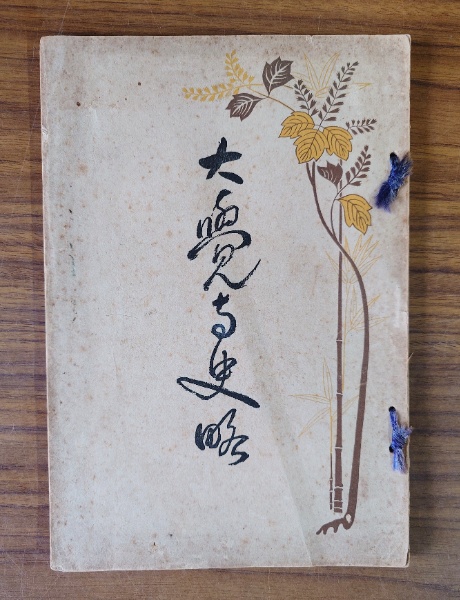 大覺寺史略